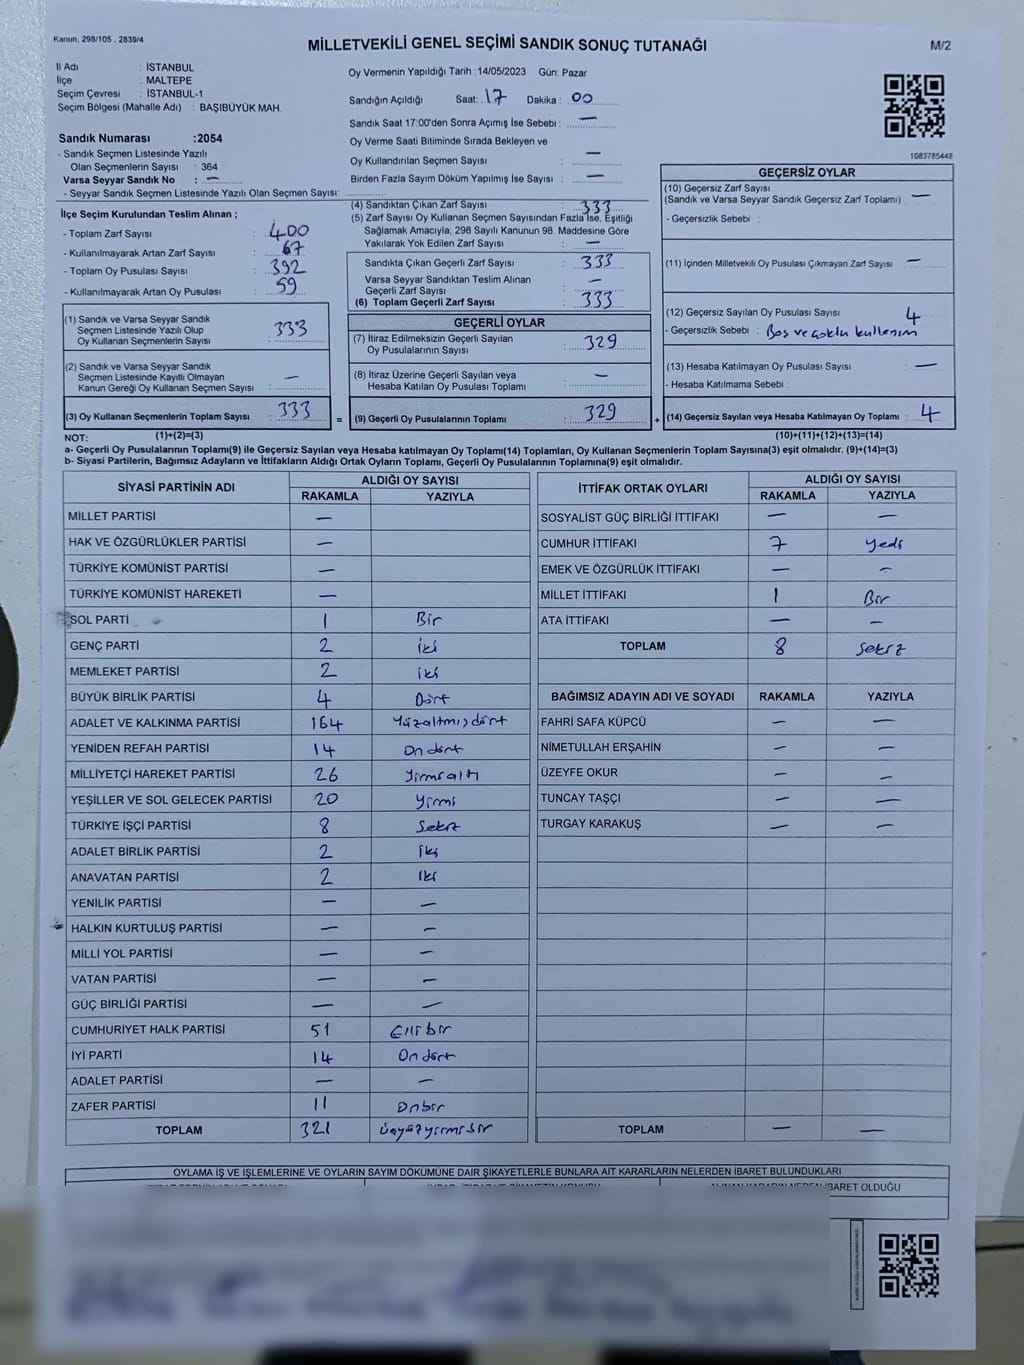 Kanun, 298/105 , 2839/4
MİLLETVEKİLİ GENEL SEÇİMİ SANDIK SONUÇ TUTANAĞI
M/2
İl Adı : İSTANBUL
İlçe : MALTEPE
Seçim Çevresi : İSTANBUL-1
Seçim Bölgesi (Mahalle Adı) : BAŞIBÜYÜK MAH.
Oy Vermenin Yapıldığı Tarih :14/05/2023 Gün: Pazar
Sandığın Açıldığı Saat: 17 Dakika : 00
Sandık Saat 17:00'den Sonra Açımış İse Sebebi : —
Oy Verme Saati Bitiminde Sırada Bekleyen ve
Oy Kullandırılan Seçmen Sayısı : —
Birden Fazla Sayım Döküm Yapılmış İse Sayısı : —
1083785448
Sandık Numarası :2054
- Sandık Seçmen Listesinde Yazılı
Olan Seçmenlerin Sayısı : 364
Varsa Seyyar Sandık No : —
- Seyyar Sandık Seçmen Listesinde Yazılı Olan Seçmen Sayısı:
İlçe Seçim Kurulundan Teslim Alınan ;
- Toplam Zarf Sayısı : 400
- Kullanılmayarak Artan Zarf Sayısı : 67
- Toplam Oy Pusulası Sayısı : 392
- Kullanılmayarak Artan Oy Pusulası : 59
(1) Sandık ve Varsa Seyyar Sandık
Seçmen Listesinde Yazılı Olup
Oy Kullanan Seçmenlerin Sayısı : 333
(2) Sandık ve Varsa Seyyar Sandık
Seçmen Listesinde Kayıtlı Olmayan
Kanun Gereği Oy Kullanan Seçmen Sayısı : —
(3) Oy Kullanan Seçmenlerin Toplam Sayısı : 333
(4) Sandıktan Çıkan Zarf Sayısı : 333
(5) Zarf Sayısı Oy Kullanan Seçmen Sayısından Fazla İse, Eşitliği
Sağlamak Amacıyla, 298 Sayılı Kanunun 98. Maddesine Göre
Yakılarak Yok Edilen Zarf Sayısı : —
Sandıkta Çıkan Geçerli Zarf Sayısı : 333
Varsa Seyyar Sandıktan Teslim Alınan
Geçerli Zarf Sayısı : —
(6) Toplam Geçerli Zarf Sayısı : 333
GEÇERLİ OYLAR
(7) İtiraz Edilmeksizin Geçerli Sayılan
Oy Pusulalarının Sayısı : 329
(8) İtiraz Üzerine Geçerli Sayılan veya
Hesaba Katılan Oy Pusulası Toplamı : —
= (9) Geçerli Oy Pusulalarının Toplamı : 329
GEÇERSİZ OYLAR
(10) Geçersiz Zarf Sayısı
(Sandık ve Varsa Seyyar Sandık Geçersiz Zarf Toplamı) : —
- Geçersizlik Sebebi :
(11) İçinden Milletvekili Oy Pusulası Çıkmayan Zarf Sayısı : —
(12) Geçersiz Sayılan Oy Pusulası Sayısı : 4
- Geçersizlik Sebebi : Boş ve çoklu kullanım
(13) Hesaba Katılmayan Oy Pusulası Sayısı : —
- Hesaba Katılmama Sebebi :
+ (14) Geçersiz Sayılan veya Hesaba Katılmayan Oy Toplamı : 4
NOT: (1)+(2)=(3) (10)+(11)+(12)+(13)=(14)
a- Geçerli Oy Pusulalarının Toplamı(9) ile Geçersiz Sayılan veya Hesaba katılmayan Oy Toplamı(14) Toplamları, Oy Kullanan Seçmenlerin Toplam Sayısına(3) eşit olmalıdır. (9)+(14)=(3)
b- Siyasi Partilerin, Bağımsız Adayların ve İttifakların Aldığı Ortak Oyların Toplamı, Geçerli Oy Pusulalarının Toplamına(9) eşit olmalıdır.
SİYASİ PARTİNİN ADI ALDIĞI OY SAYISI
RAKAMLA YAZIYLA
MİLLET PARTİSİ —
HAK VE ÖZGÜRLÜKLER PARTİSİ —
TÜRKİYE KOMÜNİST PARTİSİ —
TÜRKİYE KOMÜNİST HAREKETİ —
SOL PARTİ 1 Bir
GENÇ PARTİ 2 iki
MEMLEKET PARTİSİ 2 iki
BÜYÜK BİRLİK PARTİSİ 4 Dört
ADALET VE KALKINMA PARTİSİ 164 Yüzaltmışdört
YENİDEN REFAH PARTİSİ 14 On dört
MİLLİYETÇİ HAREKET PARTİSİ 26 yirmialtı
YEŞİLLER VE SOL GELECEK PARTİSİ 20 yirmi
TÜRKİYE İŞÇİ PARTİSİ 8 Sekiz
ADALET BİRLİK PARTİSİ 2 iki
ANAVATAN PARTİSİ 2 iki
YENİLİK PARTİSİ — —
HALKIN KURTULUŞ PARTİSİ — —
MİLLİ YOL PARTİSİ — —
VATAN PARTİSİ — —
GÜÇ BİRLİĞİ PARTİSİ — —
CUMHURİYET HALK PARTİSİ 51 Elli bir
İYİ PARTİ 14 On dört
ADALET PARTİSİ — —
ZAFER PARTİSİ 11 Onbir
TOPLAM 321 üçyüzyirmibir
İTTİFAK ORTAK OYLARI ALDIĞI OY SAYISI
RAKAMLA YAZIYLA
SOSYALİST GÜÇ BİRLİĞİ İTTİFAKI — —
CUMHUR İTTİFAKI 7 yedi
EMEK VE ÖZGÜRLÜK İTTİFAKI — —
MİLLET İTTİFAKI 1 Bir
ATA İTTİFAKI — —
TOPLAM 8 Sekiz
BAĞIMSIZ ADAYIN ADI VE SOYADI RAKAMLA YAZIYLA
FAHRİ SAFA KÜPCÜ — —
NİMETULLAH ERŞAHİN — —
ÜZEYFE OKUR — —
TUNCAY TAŞÇI — —
TURGAY KARAKUŞ — —
TOPLAM — —
OYLAMA İŞ VE İŞLEMLERİNE VE OYLARIN SAYIM DÖKÜMÜNE DAİR ŞİKAYETLERLE BUNLARA AİT KARARLARIN NELERDEN İBARET BULUNDUKLARI
ALINAN KARARIN NEDEN İBARET OLDUĞU